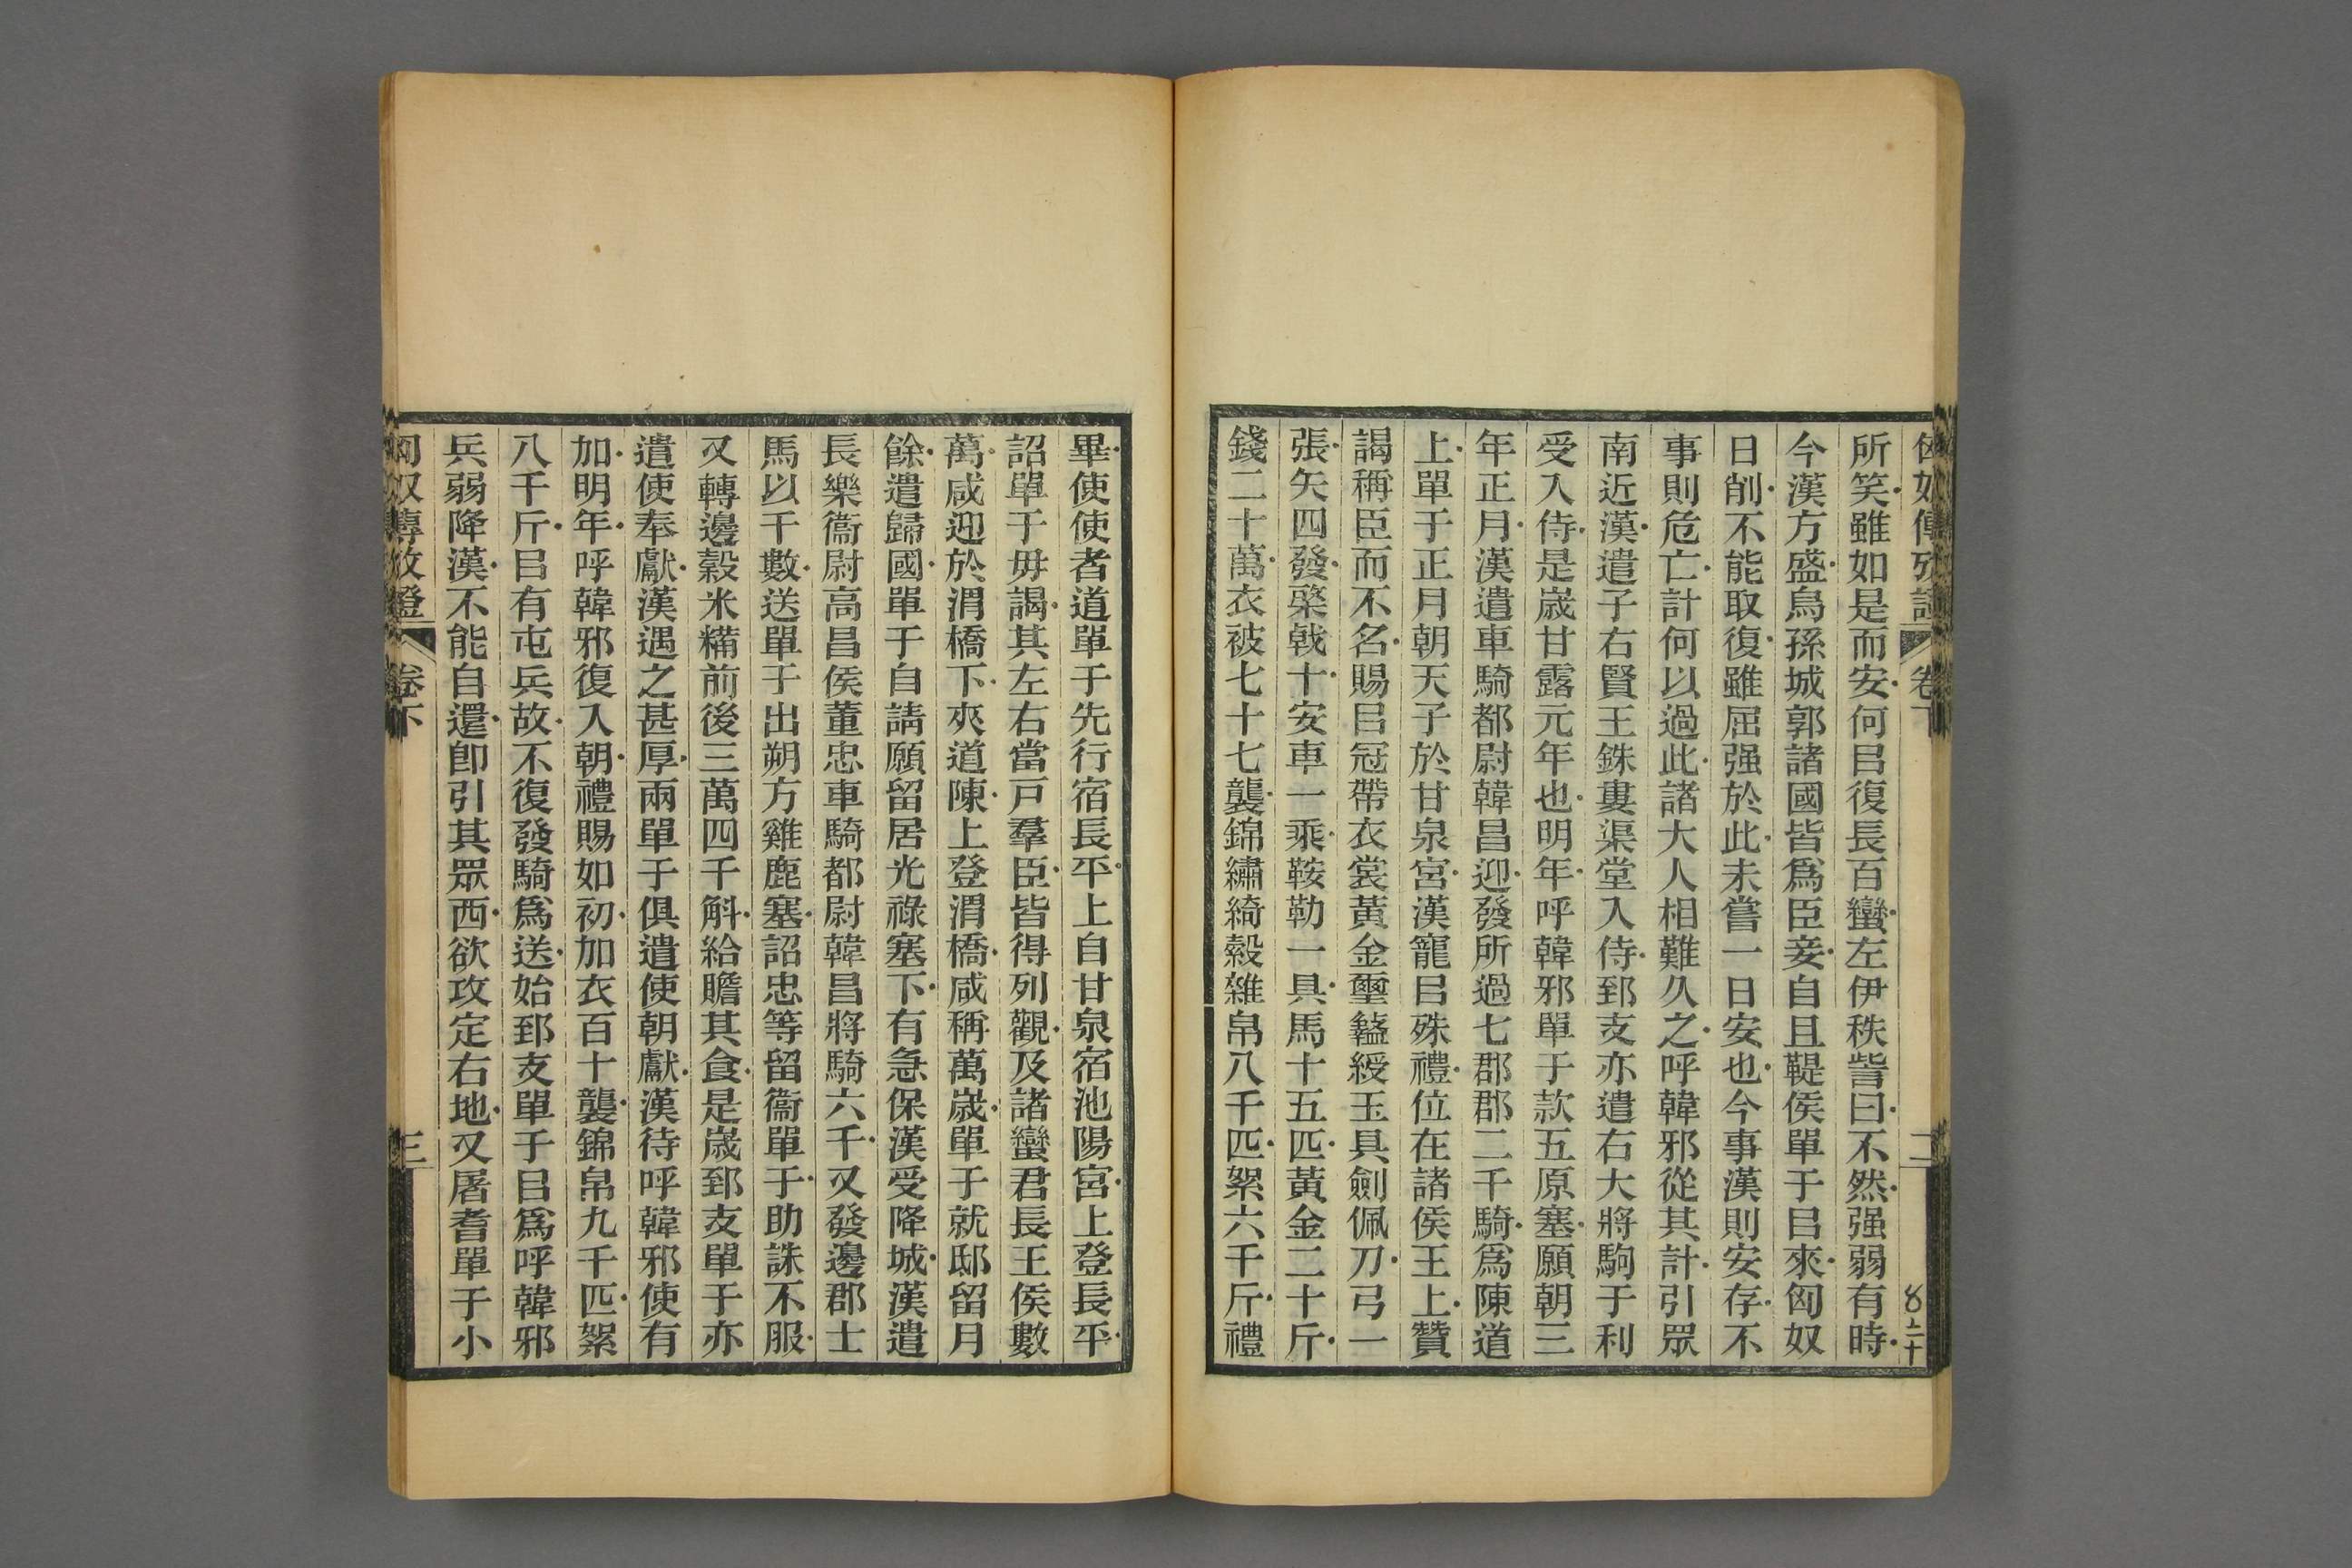 匈奴傳攷證 卷下 二
所笑雖如是而安何㠯復長百蠻左伊秩訾曰不然强弱有時
今漢方盛烏孫城郭諸國皆爲臣妾自且鞮侯單于㠯來匈奴
日削不能取復雖屈强於此未嘗一日安也今事漢則安存不
事則危亡計何以過此諸大人相難久之呼韓邪從其計引眾
南近漢遣子右賢王銖婁渠堂入侍郅支亦遣右大將駒于利
受入侍是歲甘露元年也明年呼韓邪單于款五原塞願朝三
年正月漢遣車騎都尉韓昌迎發所過七郡郡二千騎爲陳道
上單于正月朝天子於甘泉宮漢寵㠯殊禮位在諸侯王上贊
謁稱臣而不名賜㠯冠帶衣裳黃金璽盭綬玉具劍佩刀弓一
張矢四發棨戟十安車一乘鞍勒一具馬十五匹黃金二十斤
錢二十萬衣被七十七襲錦繡綺縠雜帛八千匹絮六千斤禮
畢使使者道單于先行宿長平上自甘泉宿池陽宮上登長平
詔單于毋謁其左右當戸羣臣皆得列觀及諸蠻君長王侯數
萬咸迎於渭橋下夾道陳上登渭橋咸稱萬歲單于就邸留月
餘遣歸國單于自請願留居光祿塞下有急保漢受降城漢遣
長樂衞尉高昌侯董忠車騎都尉韓昌將騎六千又發邊郡士
馬以千數送單于出朔方雞鹿塞詔忠等留衞單于助誅不服
又轉邊穀米糒前後三萬四千斛給贍其食是歲郅支單于亦
遣使奉獻漢遇之甚厚兩單于俱遣使朝獻漢待呼韓邪使有
加明年呼韓邪復入朝禮賜如初加衣百十襲錦帛九千匹絮
八千斤㠯有屯兵故不復發騎爲送始郅支單于㠯爲呼韓邪
兵弱降漢不能自還卽引其眾西欲攻定右地又屠耆單于小
匈奴傳攷證 卷下 三